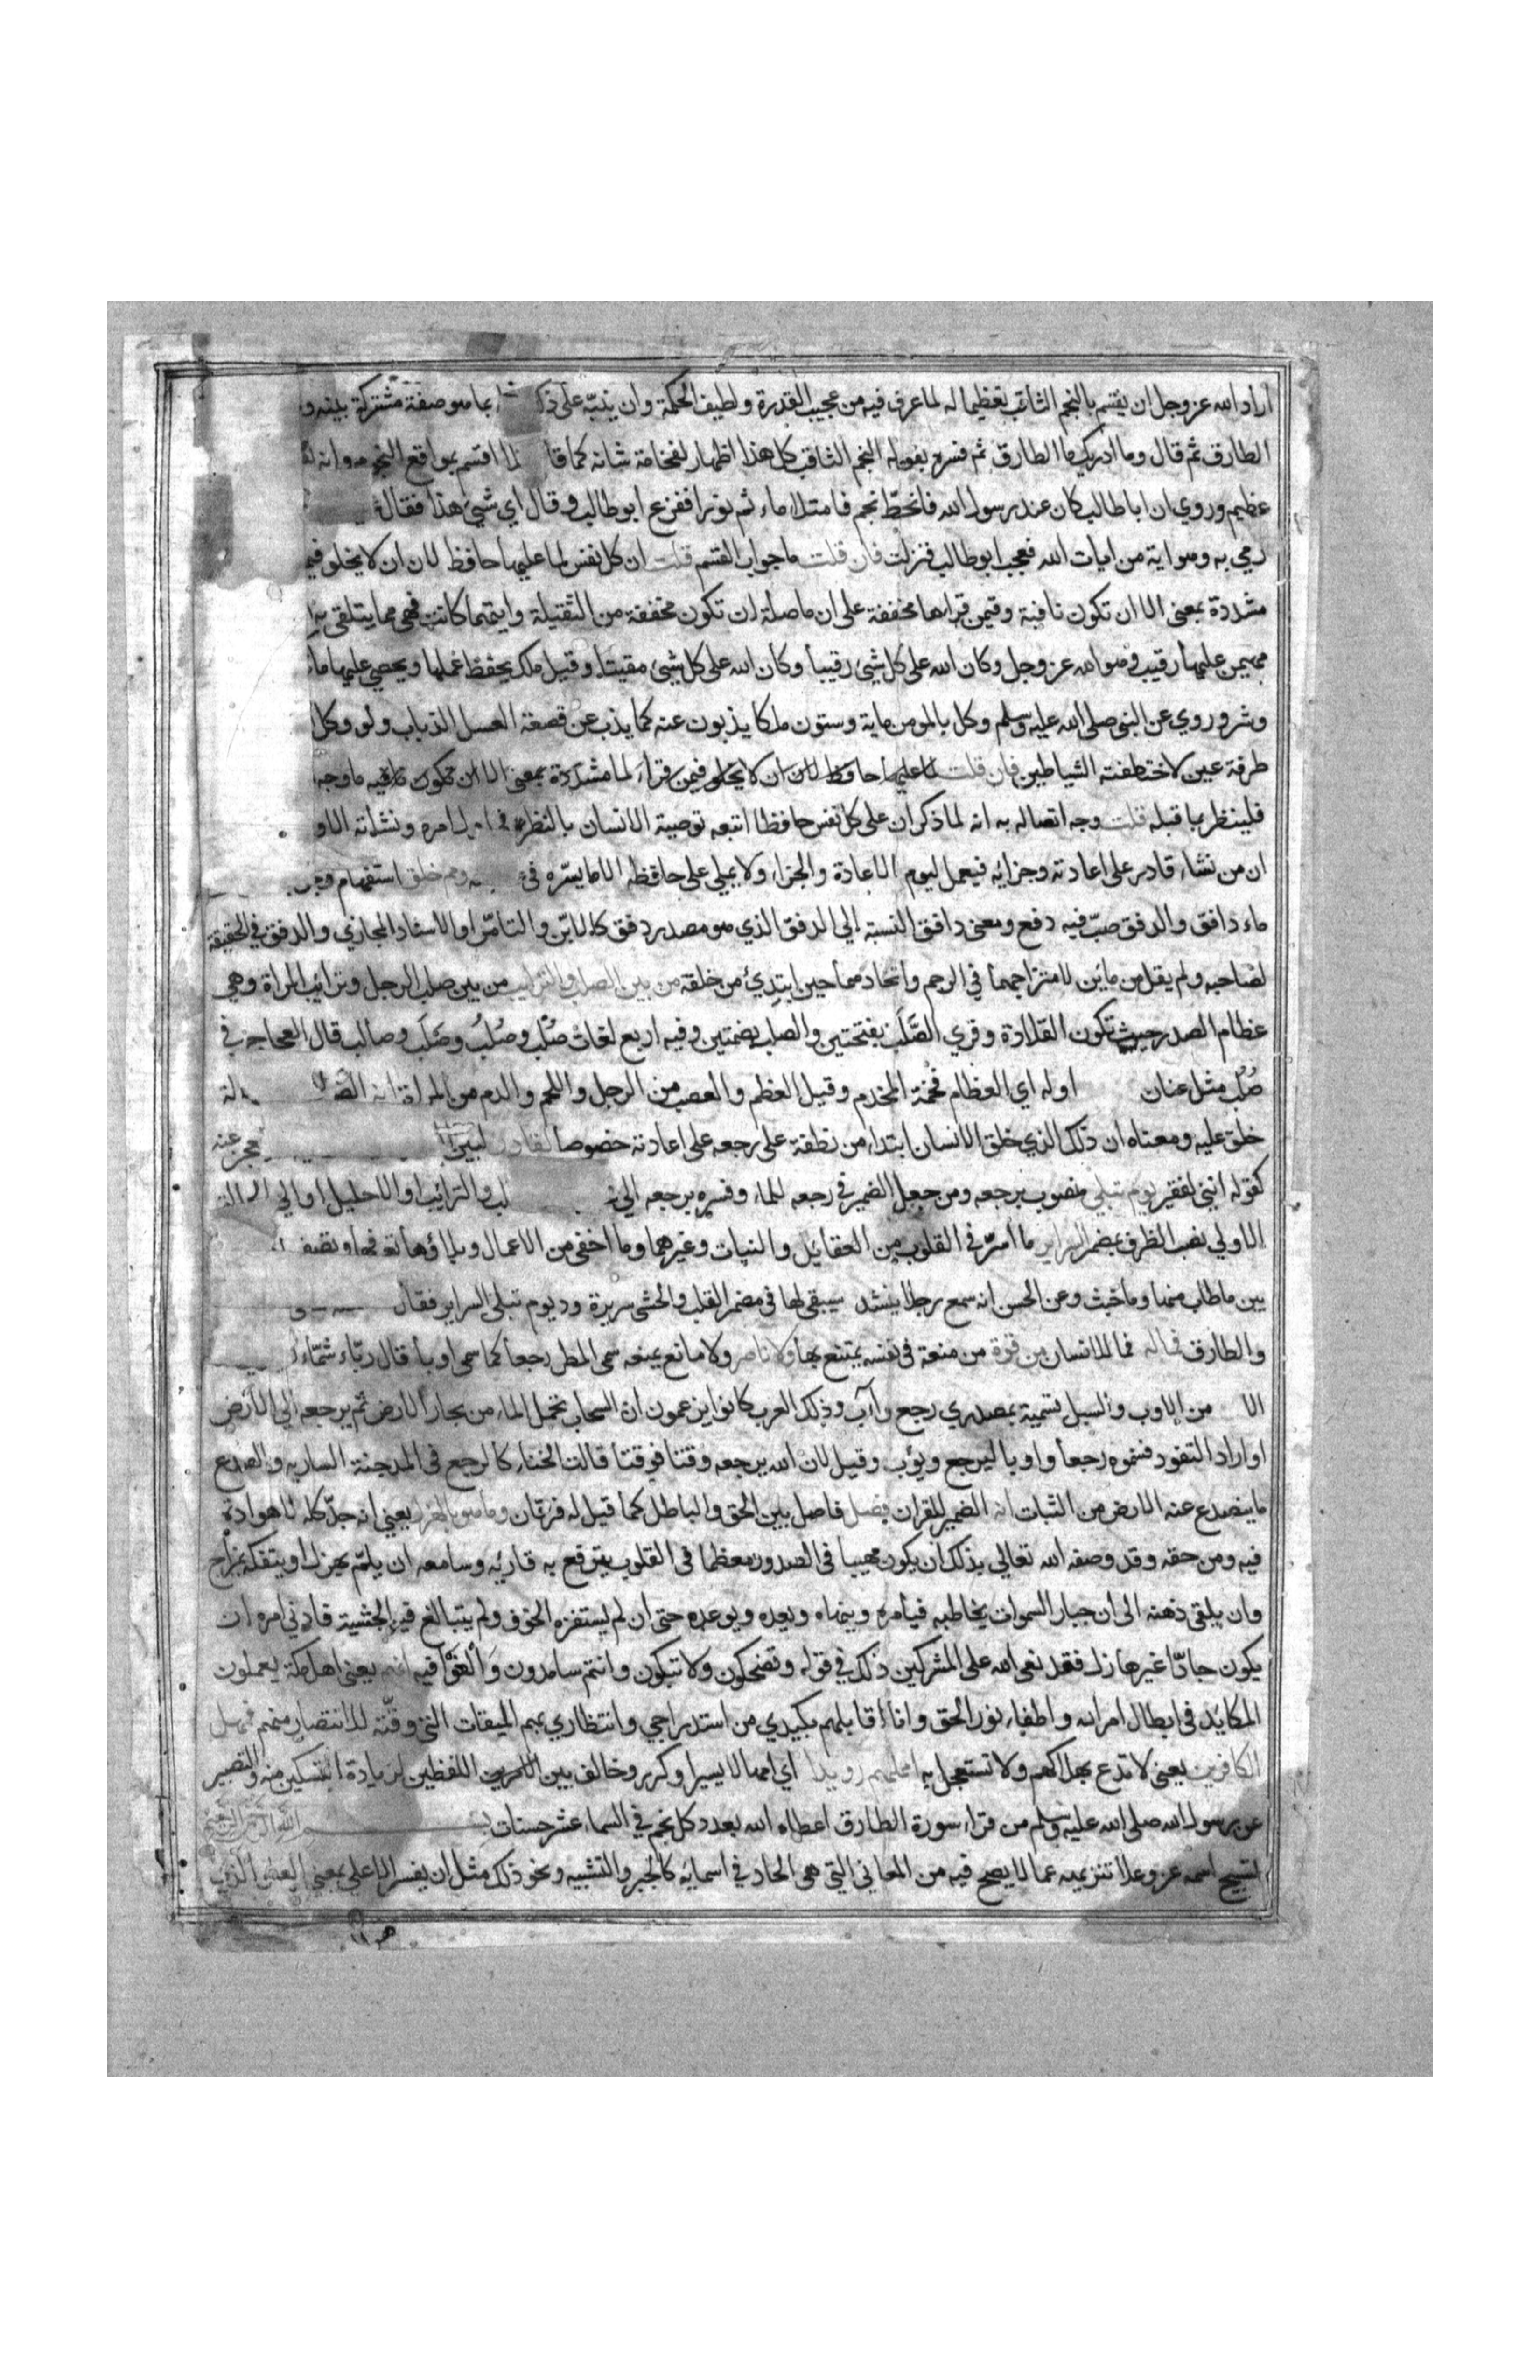 اراد الله عز وجل ان يقسم بالنجم الثاقب تعظيما له لما عرف فيه من عجيب القدرة ولطيف الحكمة وان ينبّه على بما هو صفة مشتركة بينه و
الطارق ثم قال وما ادريك ما الطارق ثم فسره بقوله النجم الثاقب كل هذا اظهار لفخامة شانه كما لما اقسم بمواقع النجوم وانه
عظيم وروي ان ابا طالب كان عند رسول الله فانحطّ نجم فامتلا ماء ثم نورا ففزع ابو طالب وقال اي شيئ هذا فقال
رمي به وهو اية من ايات الله فعجب ابو طالب فنزلت فان قلت ما جواب القسم قلت ان كل نفس لما عليها حافظ لان ان لا يخلو
مشددة بمعنى الا ان تكون نافية وفيمن قراها مخففة على ان ما صلة ان تكون مخففة من الثقيلة وايتهما كانت فهي مما يتلقى به
مهيمن عليها رقيب وهو الله عز وجل وكان الله على كل شيئ رقيبا وكان الله على كل شيئ مقيتا وقيل ملك يحفظ عملها ويحصي عليها ما
وشر وروي عن النبي صلى الله عليه وسلم وكل بالمومن ماية وستون ملكا يذبون عنه كما يذب عن قصعة العسل الذباب ولو وكل
طرفة عين لاختطفته الشياطين فان قلت لما عليها حافظ لان ان لا يخلو فيمن قراء لما مشددة بمعنى الا ان تكون ما وجه
فلينظر بما قبله قلت وجه اتصاله به انه لما ذكر ان على كل نفس حافظا اتبعه توصية الانسان بالنظر في امره ونشاته
ان من نشاء قادر على اعادته وجزايه فيعمل ليوم الاعادة والجزاء ولا يملي على حافظه الا ما يسّره في مم خلق استفهام
ماء دافق والدفق صبّ فيه دفع ومعنى دافق النسبة الى الدفق الذي هو مصدر دفق كاللابن والتامر او الاسناد المجازي والدفق في الحقيقة
لصاحبه ولم يقل من ماين لامتزاجهما في الرحم واتحادهما حين ابتدئ من خلقه من بين الصلب والترايب من بين صلب الرجل وترايب المراة وهي
عظام الصدر حيث تكون القلادة وقري الصَّلَب بفتحتين والصلب بضمتين وفيه اربع لغات صُلْب وصُلُب وصَلَب وصالب قال العجاج في
صُلُب مثل عنان اوله اي العظام فخمة المخدم وقيل العظم والعصب من الرجل واللحم والدم من المراة انه
خلق عليه ومعناه ان ذلك الذي خلق الانسان ابتداء من نطفة على رجعه على اعادته خصوصا لقادر لبيّن عنه
كقوله انني لفقير يوم تبلى منصوب برجعه ومن جعل الضمير في رجعه للماء وفسره برجعه الى والترايب او الاحليل او الى
الاولى نصب الظرف بمضمر السراير ما اسرّ في القلوب من العقايد والنيات وغيرهما وما اخفى من الاعمال وبلاؤها
بين ما طاب منها وما خبث وعن الحسن انه سمع رجلا ينشد سيبقى لها في مضمر القلب والحشى سريرة ود يوم تبلى السراير فقال
والطارق فما له فما للانسان من قوة من منعة في نفسه يمتنع بها ولا ناصر ولا مانع يمنعه سمى المطر رجعا كما سمى اوبا قال ربّاء شمّاء
الا من الاوب والسبل تسمية بمصدري رجع وآب وذلك العرب كانوا يزعمون ان السحاب تحمل الماء من بحار الارض ثم يرجعه الى الارض
او اراد التفود فسموه رجعا واوبا ليرجع ويؤب وقيل لان الله يرجعه وقتا فوقتا قالت الخنساء كالرجع في المدجنة السارية والصدع
ما ينصدع عنه الارض من النبات انه الضمير للقران فصل فاصل بين الحق والباطل كما قيل له فرقان وما هو بالهزل يعني انه جدّ كله لا هوادة
فيه ومن حقه وقد وصفه الله تعالى بذلك ان يكون مهيبا في الصدور معظما في القلوب يترفع به قاريه وسامعه ان يلمّ بهزل او يتفكه بمزاح
وان يلقى ذهنه الى ان جبار السموات يخاطبه فيامره وينهاه ويعده ويوعده حتى ان لم يستفزه الخوف ولم يتبالغ فيه الخشية فادنى امره ان
يكون جادّا غير هازل فقد نعى الله على المشركين ذلك في قوله وتضحكون ولا تبكون وانتم سامدون وَالْغَوْا فيه انهم يعنى اهل مكة يعملون
المكايد في ابطال امر الله واطفاء نور الحق وانا اقابلهم بكيدي من استدراجي وانتظاري بهم الميقات الذي وقّته للانتصار منهم فمهل
الكافرين يعنى لا تدع بهلاكهم ولا تستعجل به امهلهم رويدا اي امهالا يسيرا وكرر وخالف بين اللفظين لزيادة التسكين منه والتصبير
عن رسول الله صلى الله عليه وسلم من قراء سورة الطارق اعطاه الله بعدد كل نجم في السماء عشر حسنات بسم الله الرحمن الرحيم
تسبيح اسمه عز وعلا تنزيهه عما لا يصح فيه من المعاني التي هي الحاد في اسمايه كالجبر والتشبيه ونحو ذلك مثل ان يفسر الاعلى بمعنى العلو الذي